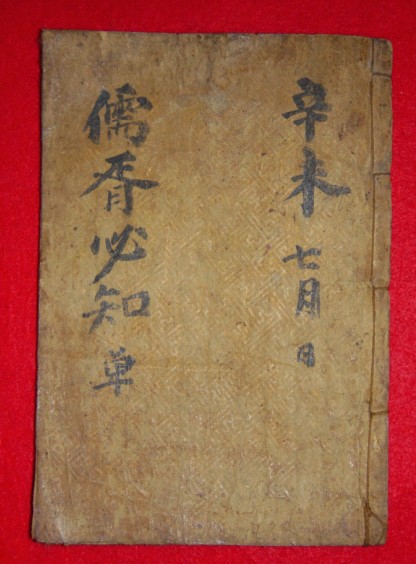 辛未 七月 日
儒胥必知 単